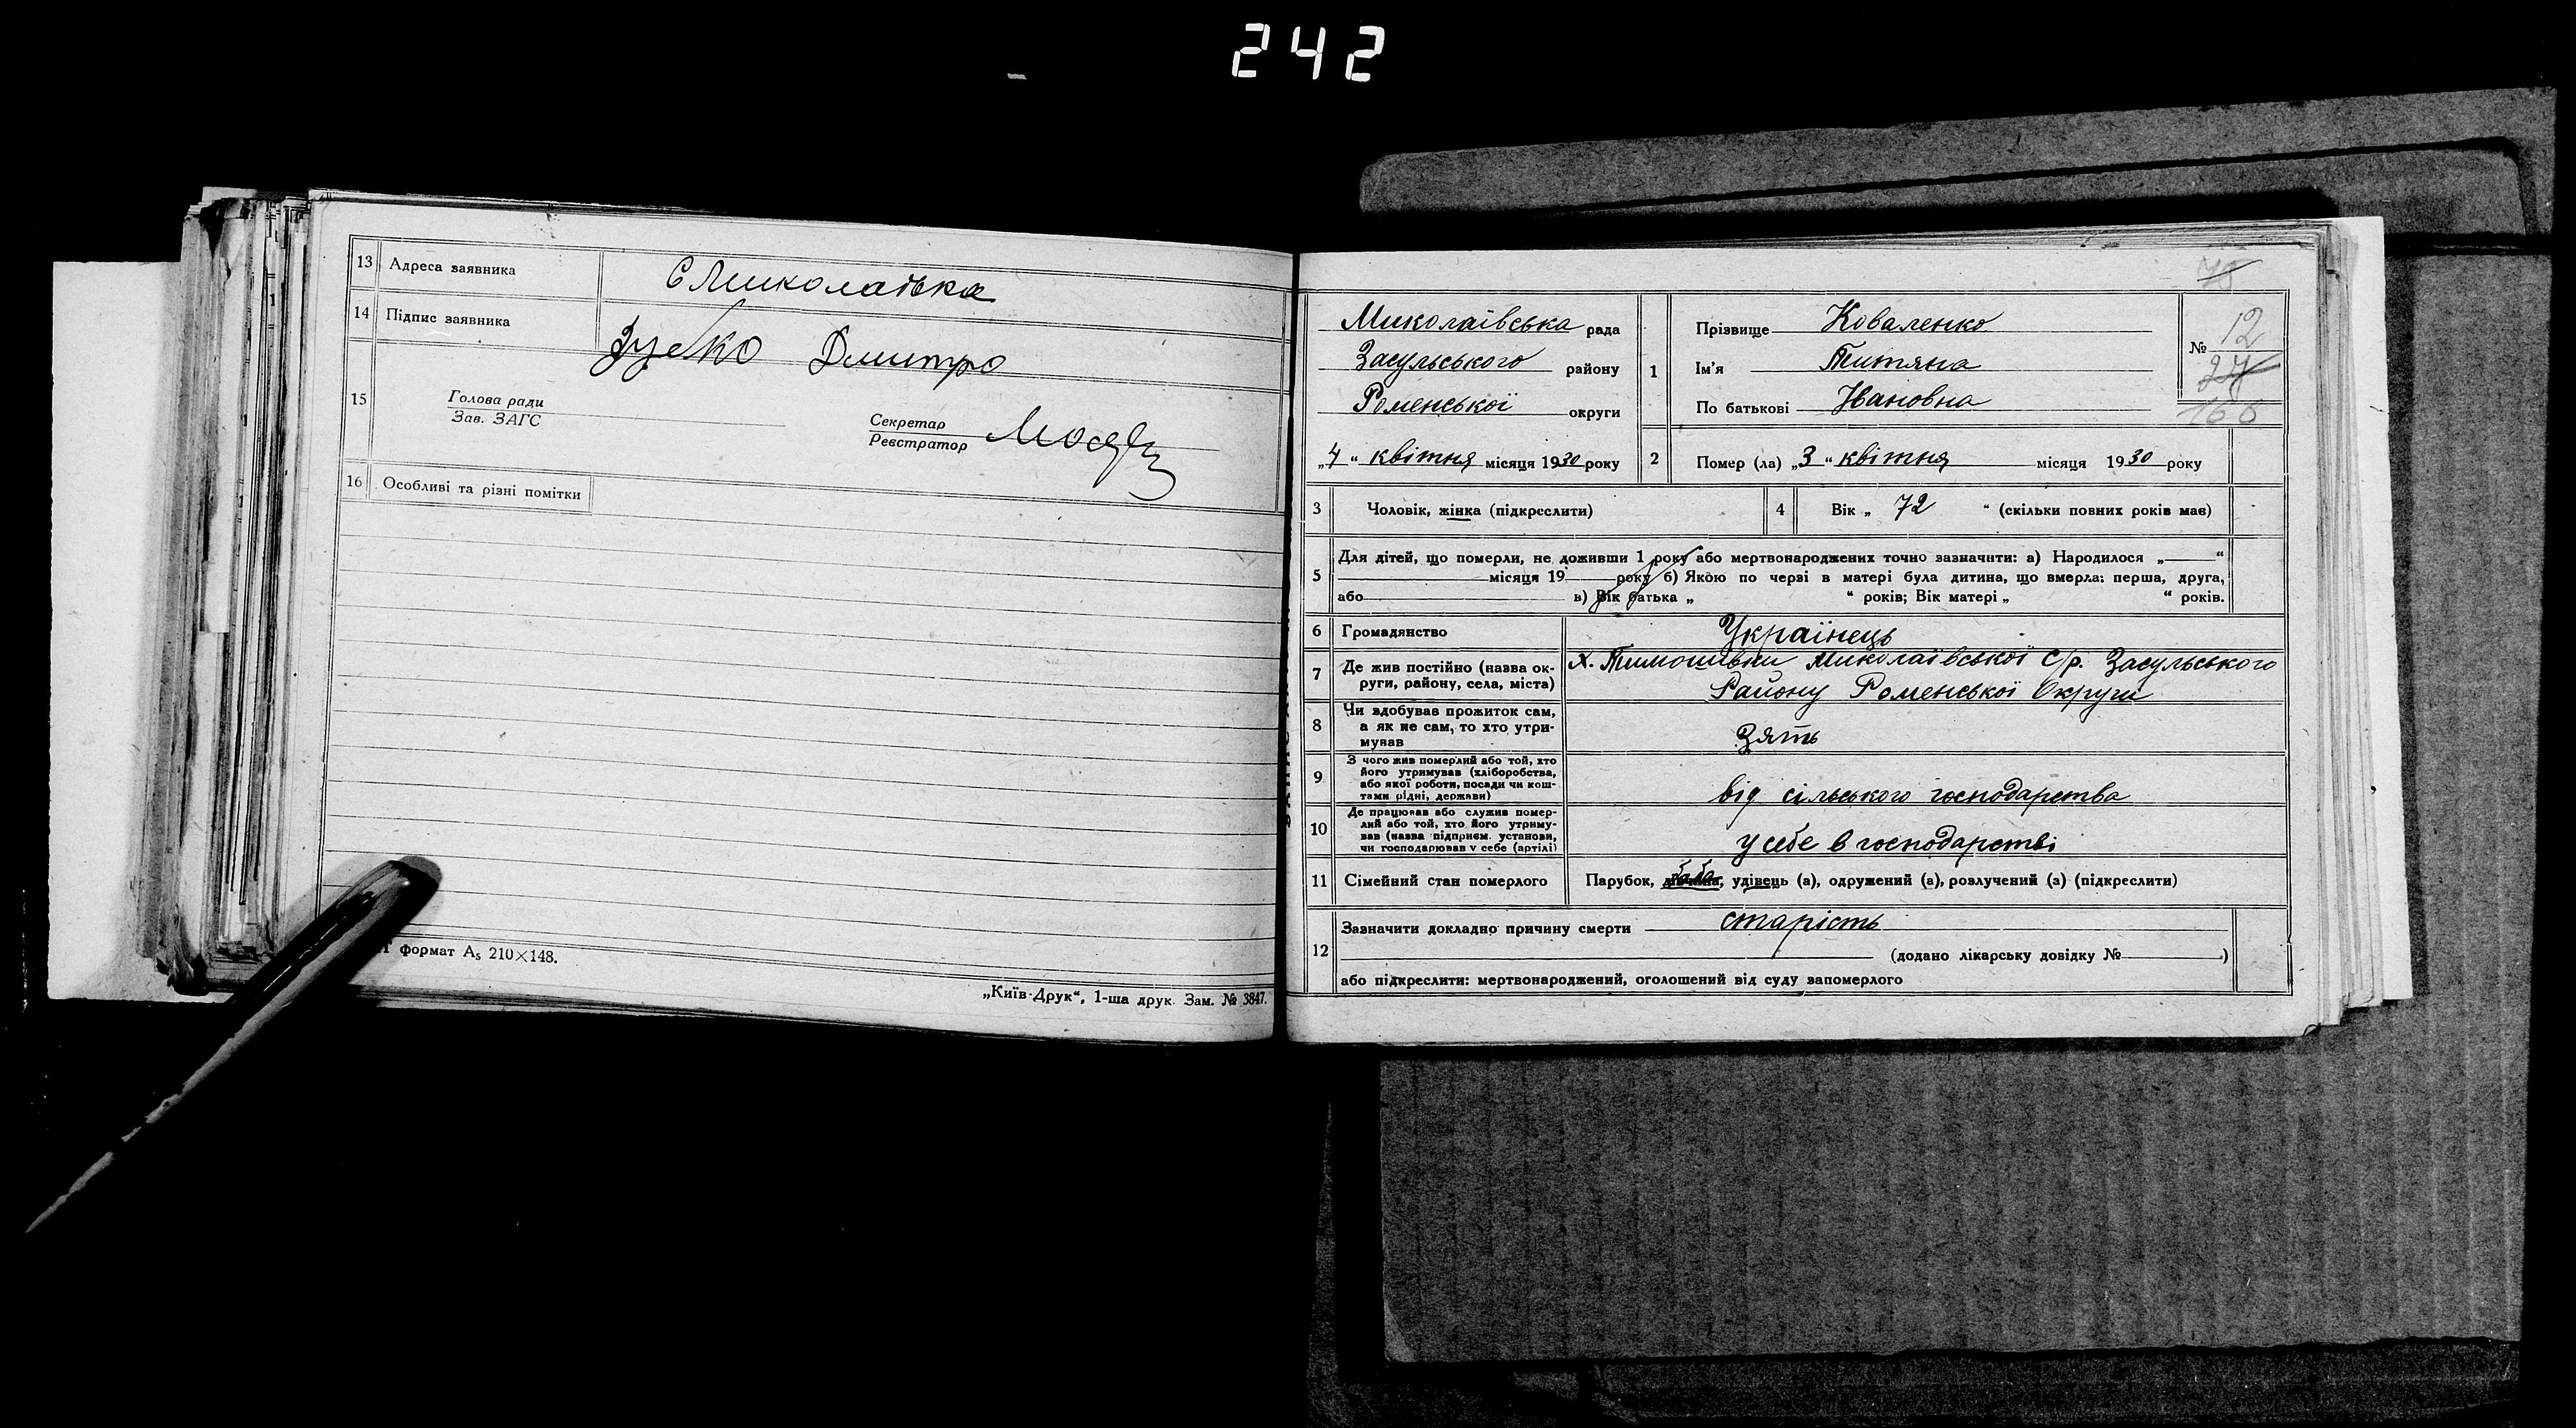 242
13 Адреса заявника С Миколаївка
14 Підпис заявника Зубко Дмитро
15 Голова ради
Зав. ЗАГС
Секретар
Реєстратор
16 Особливі та різні помітки
формат А5 210×148.
„Київ-Друк“, 1-ша друк. Зам. № 3847.
Миколаївська рада
Засульського району
Роменської округи
„4“ квітня місяця 1930 року
1 Прізвище Коваленко
Ім'я Титяна
По батькові Івановна
№ 12
27
166
2 Помер (ла) „3“ квітня місяця 1930 року
3 Чоловік, жінка (підкреслити)
4 Вік „72“ (скільки повних років має)
5 Для дітей, що померли, не доживши 1 року або мертвонароджених точно зазначити: а) Народилося „ “
місяця 19 року б) Якою по черзі в матері була дитина, що вмерла: перша, друга,
або в) Вік батька „ “ років; Вік матері „ “ років.
6 Громадянство Українець
7 Де жив постійно (назва ок-
руги, району, села, міста)
Х. Тимошівки Миколаївської С/р. Засульського
Району Роменської Округи
8 Чи здобував прожиток сам,
а як не сам, то хто утри-
мував
Зять
9 З чого жив померлий або той, хто
його утримував (хліборобства,
або якої роботи, посади чи кош-
тами рідні, держави)
від сільського господарства
10 Де працював або служив помер-
лий або той, хто його утриму-
вав (назва підприєм. установи,
чи господарював у себе (артілі)
у себе в господарстві
11 Сімейний стан померлого Парубок, баба, удівець (а), одружений (а), розлучений (а) (підкреслити)
12 Зазначити докладно причину смерти старість
(додано лікарську довідку № )
або підкреслити: мертвонароджений, оголошений від суду запомерлого